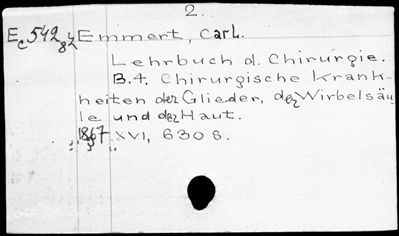 2.
Ec 542 82 Emmert, Carl.
Lehrbuch d. Chirurgie.
B.4. Chirurgische Krank-
heiten der Glieder, der Wirbelsäu
le und der Haut.
1867 XVI, 630 S.